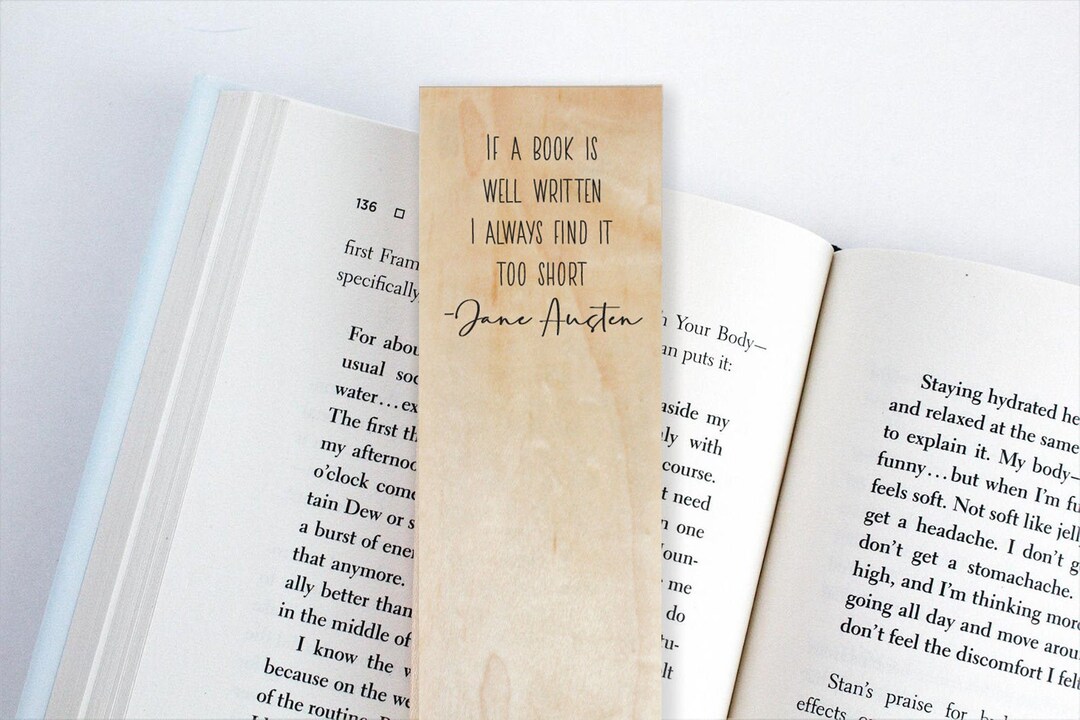 IF A BOOK IS
WELL WRITTEN
I ALWAYS FIND IT
TOO SHORT
-Jane Austen
136
first
specifically
For
usual
water...
The first
my
o'clock
tain Dew or
a burst of
that anymore.
ally better than
in the middle of
I know the
because on the
of the routine.
Your Body—
puts it:
aside my
with
course.
need
one
me
do
Staying hydrated
and relaxed at the same
to explain it. My body—
funny...but when I'm
feels soft. Not soft like
get a headache. I don't
don't get a stomachache.
high, and I'm thinking more
going all day and move
don't feel the discomfort I
Stan's praise for
effects